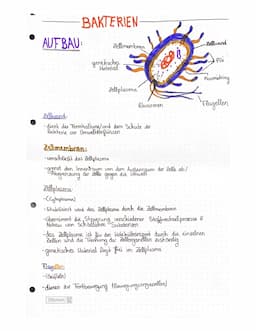 BAKTERIEN
AUFBAU:
Zellmembran
Zellwand
genetisches
Material
Pili
Zellplasma
Ribosomen
Flagellen
Zellwand:
- dient der Formhaltung und dem Schutz der
Bakterie vor Umwelteinflüssen
Zellmembran:
- umschließt das Zellplasma
- grenzt den Innenraum von dem Außenraum der Zelle ab/
Abgrenzung der Zelle gegen die Umwelt
Zellplasma:
- (Cytoplasma)
- Stabilisiert wird das Zellplasma durch die Zellmembran
- übernimmt die Steuerung verschiedener Stoffwechselprozesse &
Abbau von Schädlichen Substanzen
- das Zellplasma ist für den Molekültransport durch die einzelnen
Zellen und die Trennung der Zellorganellen zuständig
- genetisches Material liegt frei im Zellplasma
Flagellen:
- (Geißeln)
- dienen der Fortbewegung